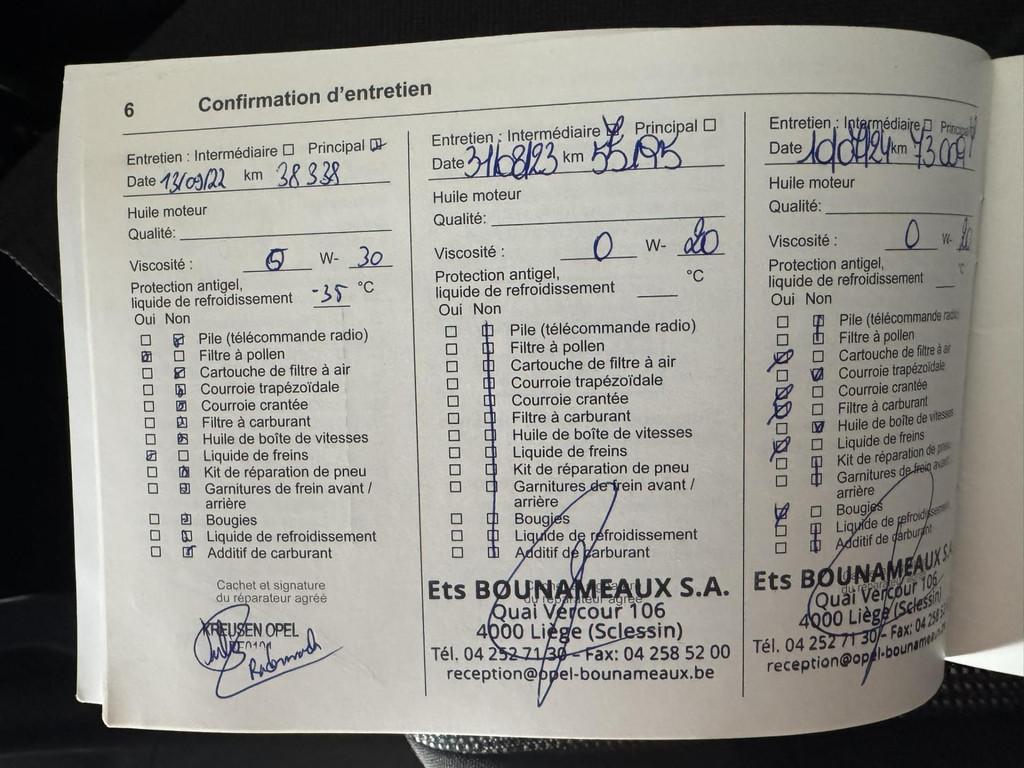 6 Confirmation d'entretien
Entretien : Intermédiaire ☐ Principal ☑
Date 13/09/22 km 38338
Huile moteur
Qualité:
Viscosité : 0 W- 30
Protection antigel,
liquide de refroidissement -35 °C
Oui Non
Pile (télécommande radio)
Filtre à pollen
Cartouche de filtre à air
Courroie trapézoïdale
Courroie crantée
Filtre à carburant
Huile de boîte de vitesses
Liquide de freins
Kit de réparation de pneu
Garnitures de frein avant /
arrière
Bougies
Liquide de refroidissement
Additif de carburant
Cachet et signature
du réparateur agréé
KREUSEN OPEL
Entretien : Intermédiaire ☑ Principal ☐
Date 31/08/23 km 55195
Huile moteur
Qualité:
Viscosité : 0 W- 20
Protection antigel,
liquide de refroidissement °C
Oui Non
Pile (télécommande radio)
Filtre à pollen
Cartouche de filtre à air
Courroie trapézoïdale
Courroie crantée
Filtre à carburant
Huile de boîte de vitesses
Liquide de freins
Kit de réparation de pneu
Garnitures de frein avant /
arrière
Bougies
Liquide de refroidissement
Additif de carburant
du réparateur agréé
Ets BOUNAMEAUX S.A.
Quai Vercour 106
4000 Liège (Sclessin)
Tél. 04 252 71 30 - Fax: 04 258 52 00
reception@opel-bounameaux.be
Entretien : Intermédiaire ☐ Principal ☑
Date km 73009
Huile moteur
Qualité:
Viscosité : 0 W- 20
Protection antigel,
liquide de refroidissement °C
Oui Non
Pile (télécommande radio)
Filtre à pollen
Cartouche de filtre à air
Courroie trapézoïdale
Courroie crantée
Filtre à carburant
Huile de boîte de vitesses
Liquide de freins
Kit de réparation de pneu
Garnitures de frein avant
arrière
Bougies
Liquide de refroidissement
Additif de carburant
Ets BOUNAMEAUX S.A.
Quai Vercour 106
4000 Liège (Sclessin)
Tél. 04 252 71 30 - Fax: 04 258 5
reception@opel-bounameaux